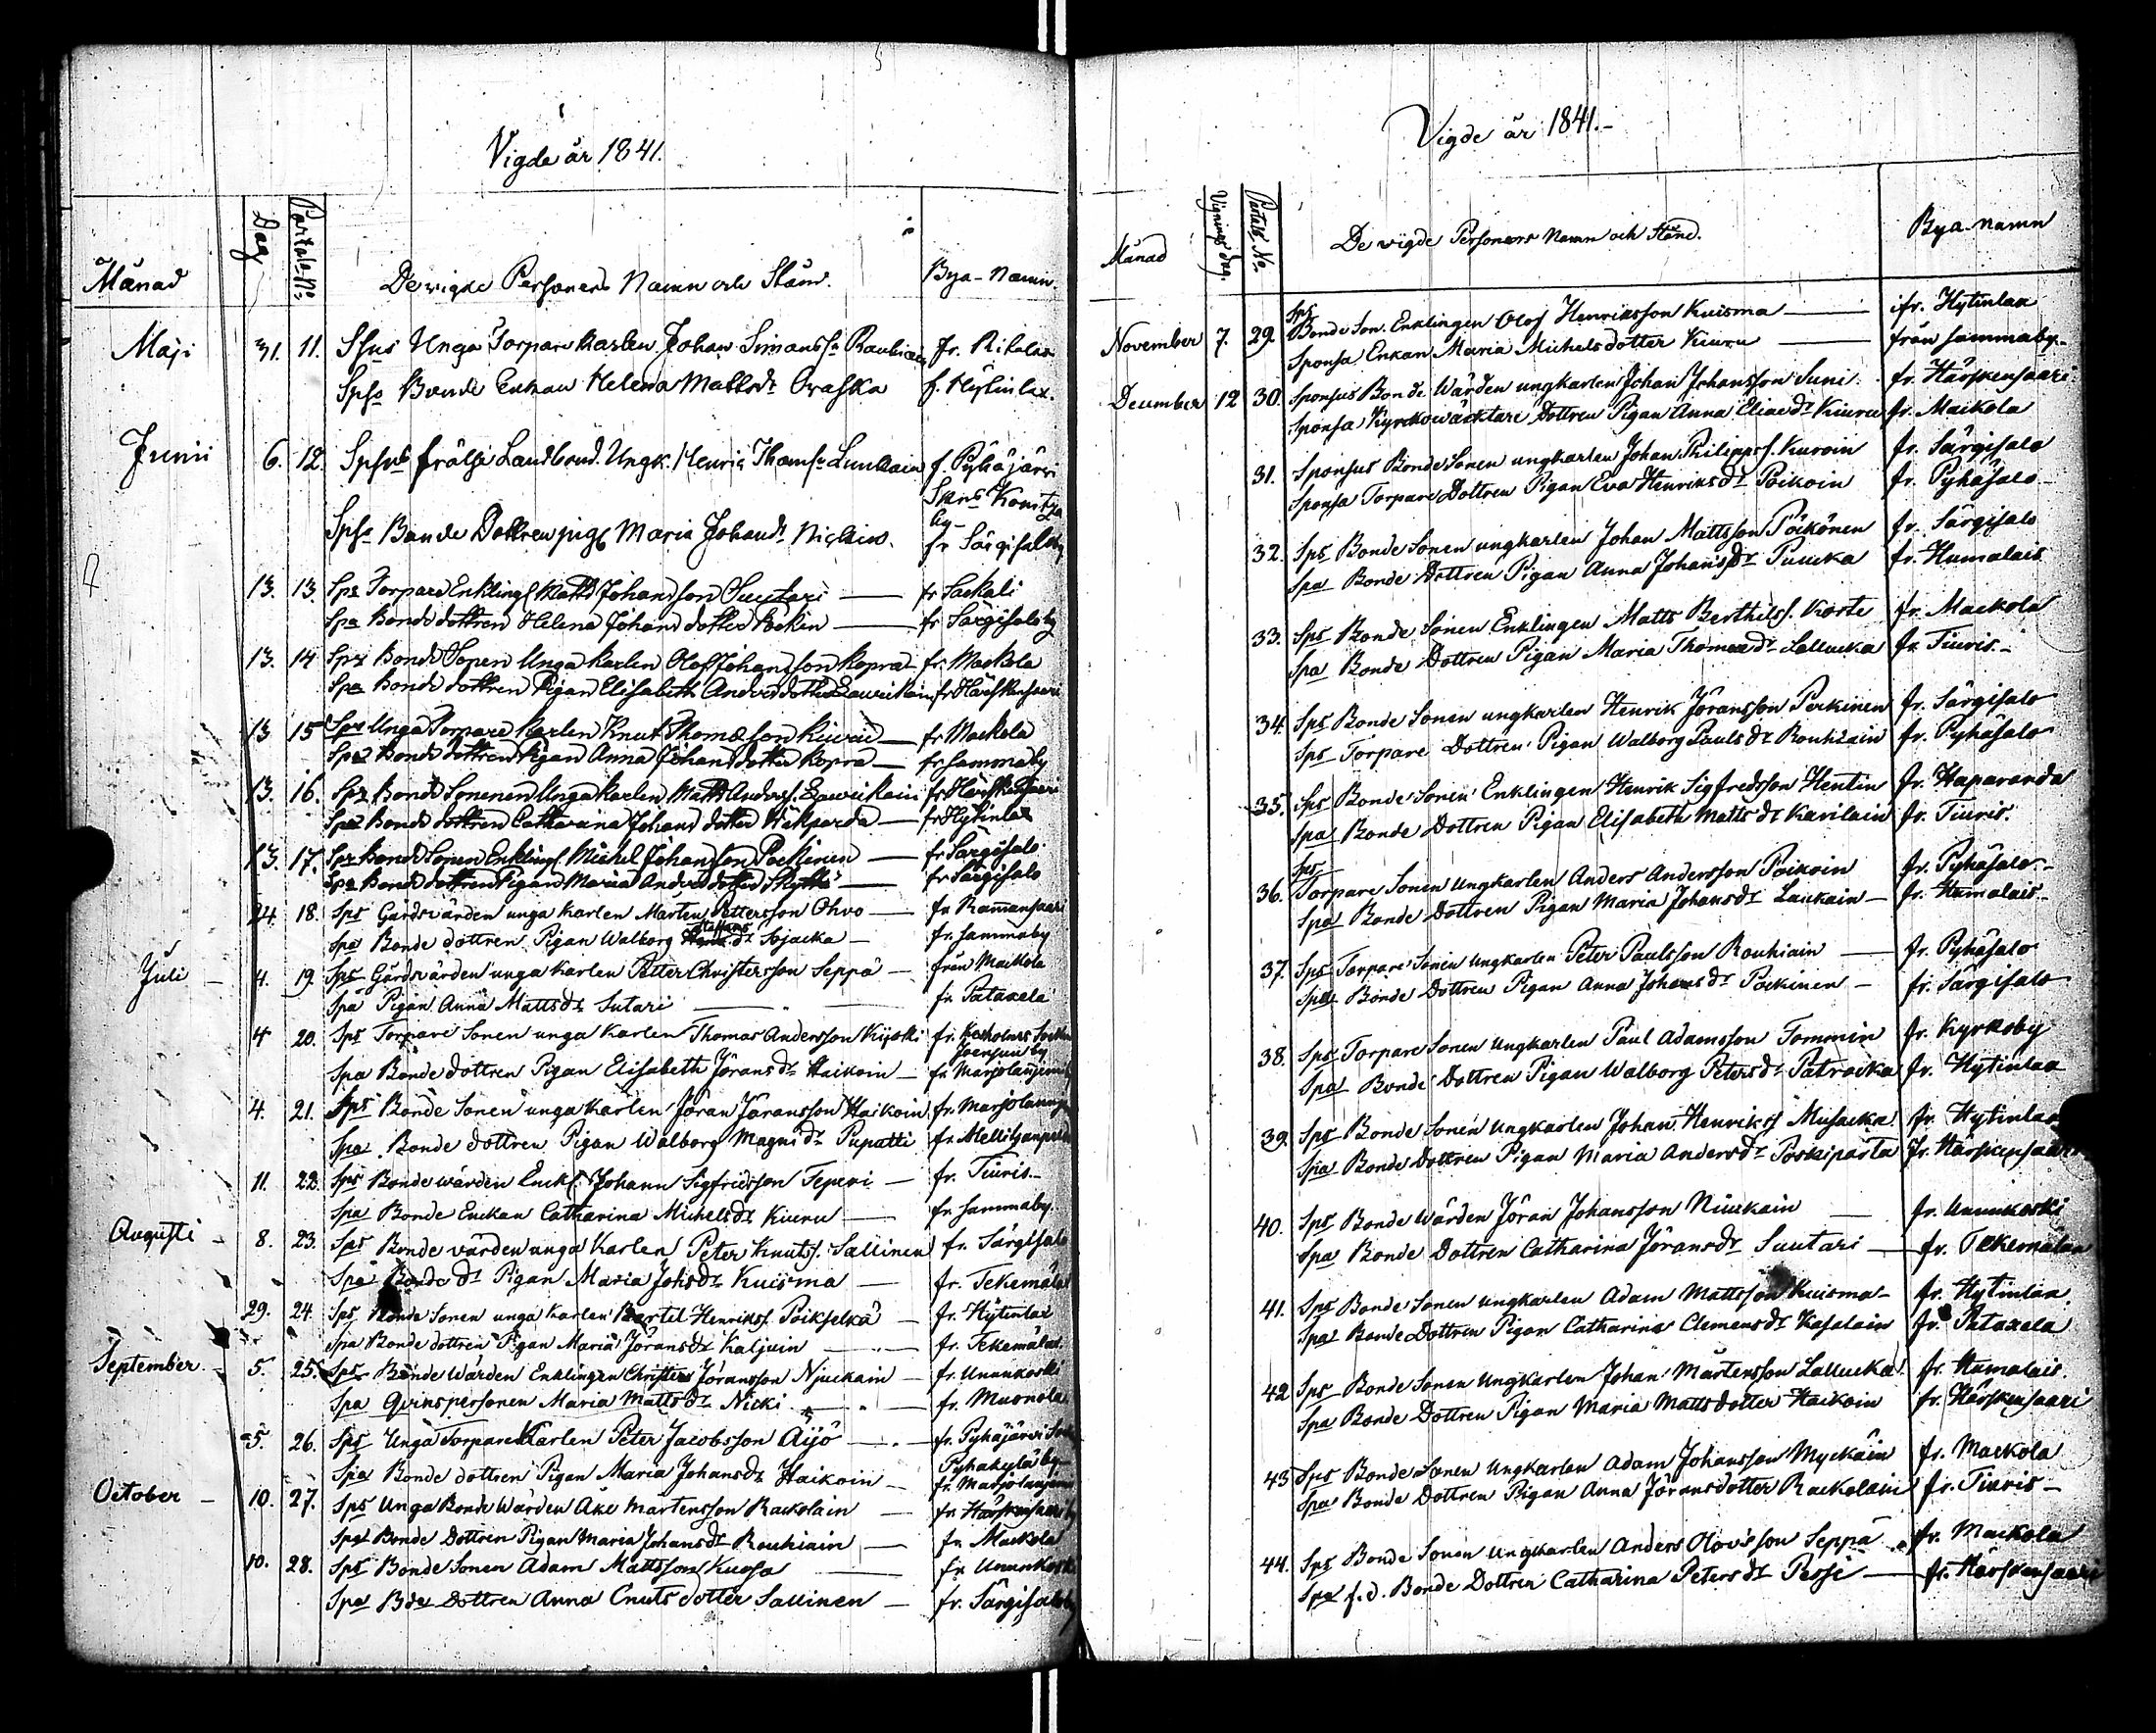 Vigde år 1841.
Månad Dag Partals No De vigde Personers Namn och Stånd. Bya-Namn
Maji 31. 11. Spsus Unga Torpare karlen Johan Simonss. Rauhiain fr. Rikalax
Spsa Bonde Enkan Helena Mattsdr Oraska f. Hytinlax.
Junii 6. 12. Spsus frälse Landbond. Ungk. Henric Thomss. f. Pyhäjärvi
Skns Konitza
by
Spsa Bonde Dottren pig. Maria Johansdr fr Särgisaloby
13. 13. Sps Torpare Enkling Matts Johansson Suutari fr Sackali
Spa Bonde dottren Helena Johans dotter Pöckin fr Särgisaloby
13. 14 Sps Bonde Sonen Unga karlen Olof Johansson Kopra fr. Mackola
Spa Bonde dottren Pigan Elisabeth Anders dotter Laurikain fr Härskensaari
13 15 Sps Unga Torpare Karlen Knut Thomæson Kiuru fr Mackola
Spa Bonde dottren Pigan Anna Johans dotter Kopra fr Sammaby
13. 16. Sps Bonde Sonenen Unga karlen Matts Anderss. Laurikain fr Härskensaari
Spa Bonde dottren Catharina Johans dotter fr Hytinlax
13. 17. Sps Bonde Sonen Enkling Michel Johansson Pöckinen fr Särgisalo
Spa Bonde dottren Pigan Maria Anders dotter Skyttä fr Särgisalo
24. 18. Sps Gårdsvärden unga karlen Marten Pettersson Ohvo fr Ramansaari
Spa Bonde dottren Pigan Walborg Staffans dr Sojacka fr. Sammaby
Juli 4. 19. Sps Gårdsvärden unga Karlen Petter Christersson Seppä från Mackola
Spa Pigan Anna Mattsdr Sutari fr. Pataxela
4 20. Sps Torpare Sonen unga Karlen Thomas Andersson Kiiski fr. Kexholms Sockn
Joensuu by
Spa Bonde dottren Pigan Elisabeth Jöransdr Haikoin fr Marjolanjemiby
4. 21. Sps Bonde Sonen unga Karlen Jöran Jöransson Haikoin fr. Marjolannjemi
Spa Bonde dottren Pigan Walborg Magnidr Puputti
11. 22. Sps Bonde wärden Enkl. Johann Sigfridsson Teperi fr. Tiuris
Spa Bonde Enckan Catharina Michelsdr Kiuru fr Sammaby
Augusti 8. 23. Sps Bonde värden unga Karlen Peter Knutss. Sallinen fr. Särgisalo
Spa Bonde dr Pigan Maria Johsdr Kuisma fr. Tekemäla
29. 24. Sps Bonde Sonen unga karlen Bertil Henrikss. Poikselkä fr. Hytinlax
Spa Bonde dottren Pigan Maria Jöransdr Kaljuin fr. Tekemälax
September 5. 25. Sps Bonde Wärden Enklingen Christer Jöransson Njuckain fr. Unnunkoski
Spa Qvinspersonen Maria Mattsdr Nicki fr. Kuonola
5. 26. Sps Unga Torpare Karlen Peter Jacobsson Äijö fr. Pyhäjärvi Sock
Pyhäkylä by
Spa Bonde dottren Pigan Maria Johansdr Haikoin fr. Marjolanjemi
October 10. 27. Sps Unga Bonde Wärden Åke Martensson Rackolain fr. Härskensaari by
Spa Bonde Dottren Pigan Maria Johansdr Rouhiain fr Mackola
10. 28. Sps Bonde Sonen Adam Mattsson Kuosa fr Unnunkoski
Spa Bde Dottren Anna Cnuts dotter Sallinen fr. Särgisaloby
Vigde år 1841.
Månad Vignings dag. Partals No. De vigde Personers Namn och Stånd. Bya namn
Sps
November 7. 29. Bonde Son. Enklingen Olof Henriksson Kuisma fr. Hytinlax
Sponsa Enkan Maria Michelsdotter Kiuru från Sammaby
December 12 30. Sponsus Bonde Wärden ungkarlen Johan Johansson Suni fr. Härskensaari
Sponsa Kyrkowäcktare Dottren Pigan Anna Eliaedr Kiuru fr. Mackola
31. Sponsus Bonde Sonen ungkarlen Johan Philipps. Kuroin fr. Särgisalo
Sponsa Torpare Dottren Pigan Eva Henriksdr Poikoin fr. Pyhäsalo
32. Sps Bonde Sonen ungkarlen Johan Mattsson Pöckönen fr. Särgisalo
Spa Bonde Dottren Pigan Anna Johansdr Puucka fr. Humalais
33. Sps Bonde Sonen Enklingen Matts Berthilss. Korte fr. Mackola
Spa Bonde Dottren Pigan Maria Thomædr Lallucka fr. Tiuris.
34. Sps Bonde Sonen ungkarlen Henrik Jöransson Perkinen fr. Särgisalo
Sps Torpare Dottren Pigan Walborg Paulsdr Rouhiain fr. Pyhäsalo
35. Sps Bonde Sonen Enklingen Henrik Sigfredsson Hentin fr. Haparanda
Spa Bonde Dottren Pigan Elisabeth Mattsdr Karilain fr. Tiuris.
Sps
36. Torpare Sonen ungkarlen Anders Andersson Poikoin fr. Pyhäsalo
Spa Bonde Dottren Pigan Maria Johansdr Laukain fr. Humalais
37. Sps Torpare Sonen ungkarlen Peter Paulsson Rouhiain fr. Pyhäsalo
Spa Bonde Dottren Pigan Anna Johansdr Pöckinen fr. Särgisalo
38. Sps Torpare Sonen ungkarlen Paul Adamsson Tommin fr. Kyrkoby
Spa Bonde Dottren Pigan Walborg Petersdr Patracka fr. Hytinlax
39. Sps Bonde Sonen ungkarlen Johan Henrikss Musacka fr. Hytinlax
Spa Bonde Dottren Pigan Maria Andersdr Poskiparta fr. Härskensaari
40. Sps Bonde Wärden Jöran Johansson Niuckain fr. Unnunkoski
Spa Bonde Dottren Catharina Jöransdr Suutari fr. Tekemälax
41. Sps Bonde Sonen ungkarlen Adam Mattsson Kuisma fr. Hytinlax
Spa Bonde Dottren Pigan Catharina Clemensdr Kasalain fr. Pataxela
42 Sps Bonde Sonen ungkarlen Johan Mårtensson Lallucka fr. Humalais.
Spa Bonde Dottren Pigan Maria Matts dotter Haikoin fr. Härskensaari
43 Sps Bonde Sonen ungkarlen Adam Johansson Myckäin fr. Mackola
Spa Bonde Dottren Pigan Anna Jöransdotter Rackolain fr. Tiuris
44. Sps Bonde Sonen ungkarlen Anders Olovsson Seppä fr. Mackola
Spa f.d. Bonde Dottren Catharina Petersdr Pessi fr. Härskensaari